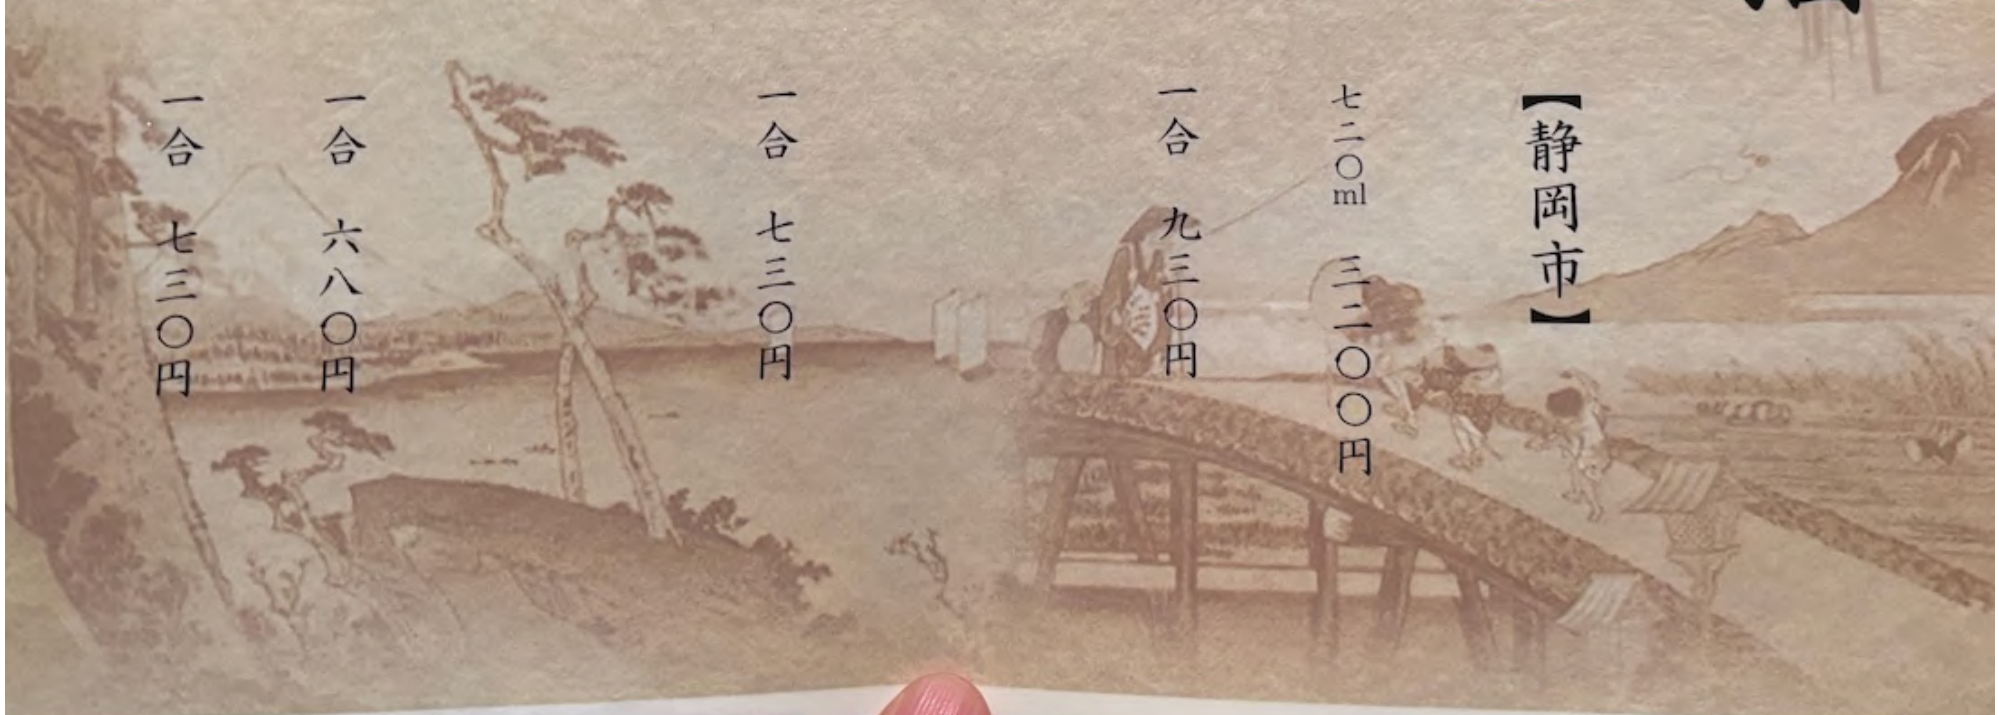 【静岡市】
七二〇ml 三二〇〇円
一合 九三〇円
一合 七三〇円
一合 六八〇円
一合 七三〇円